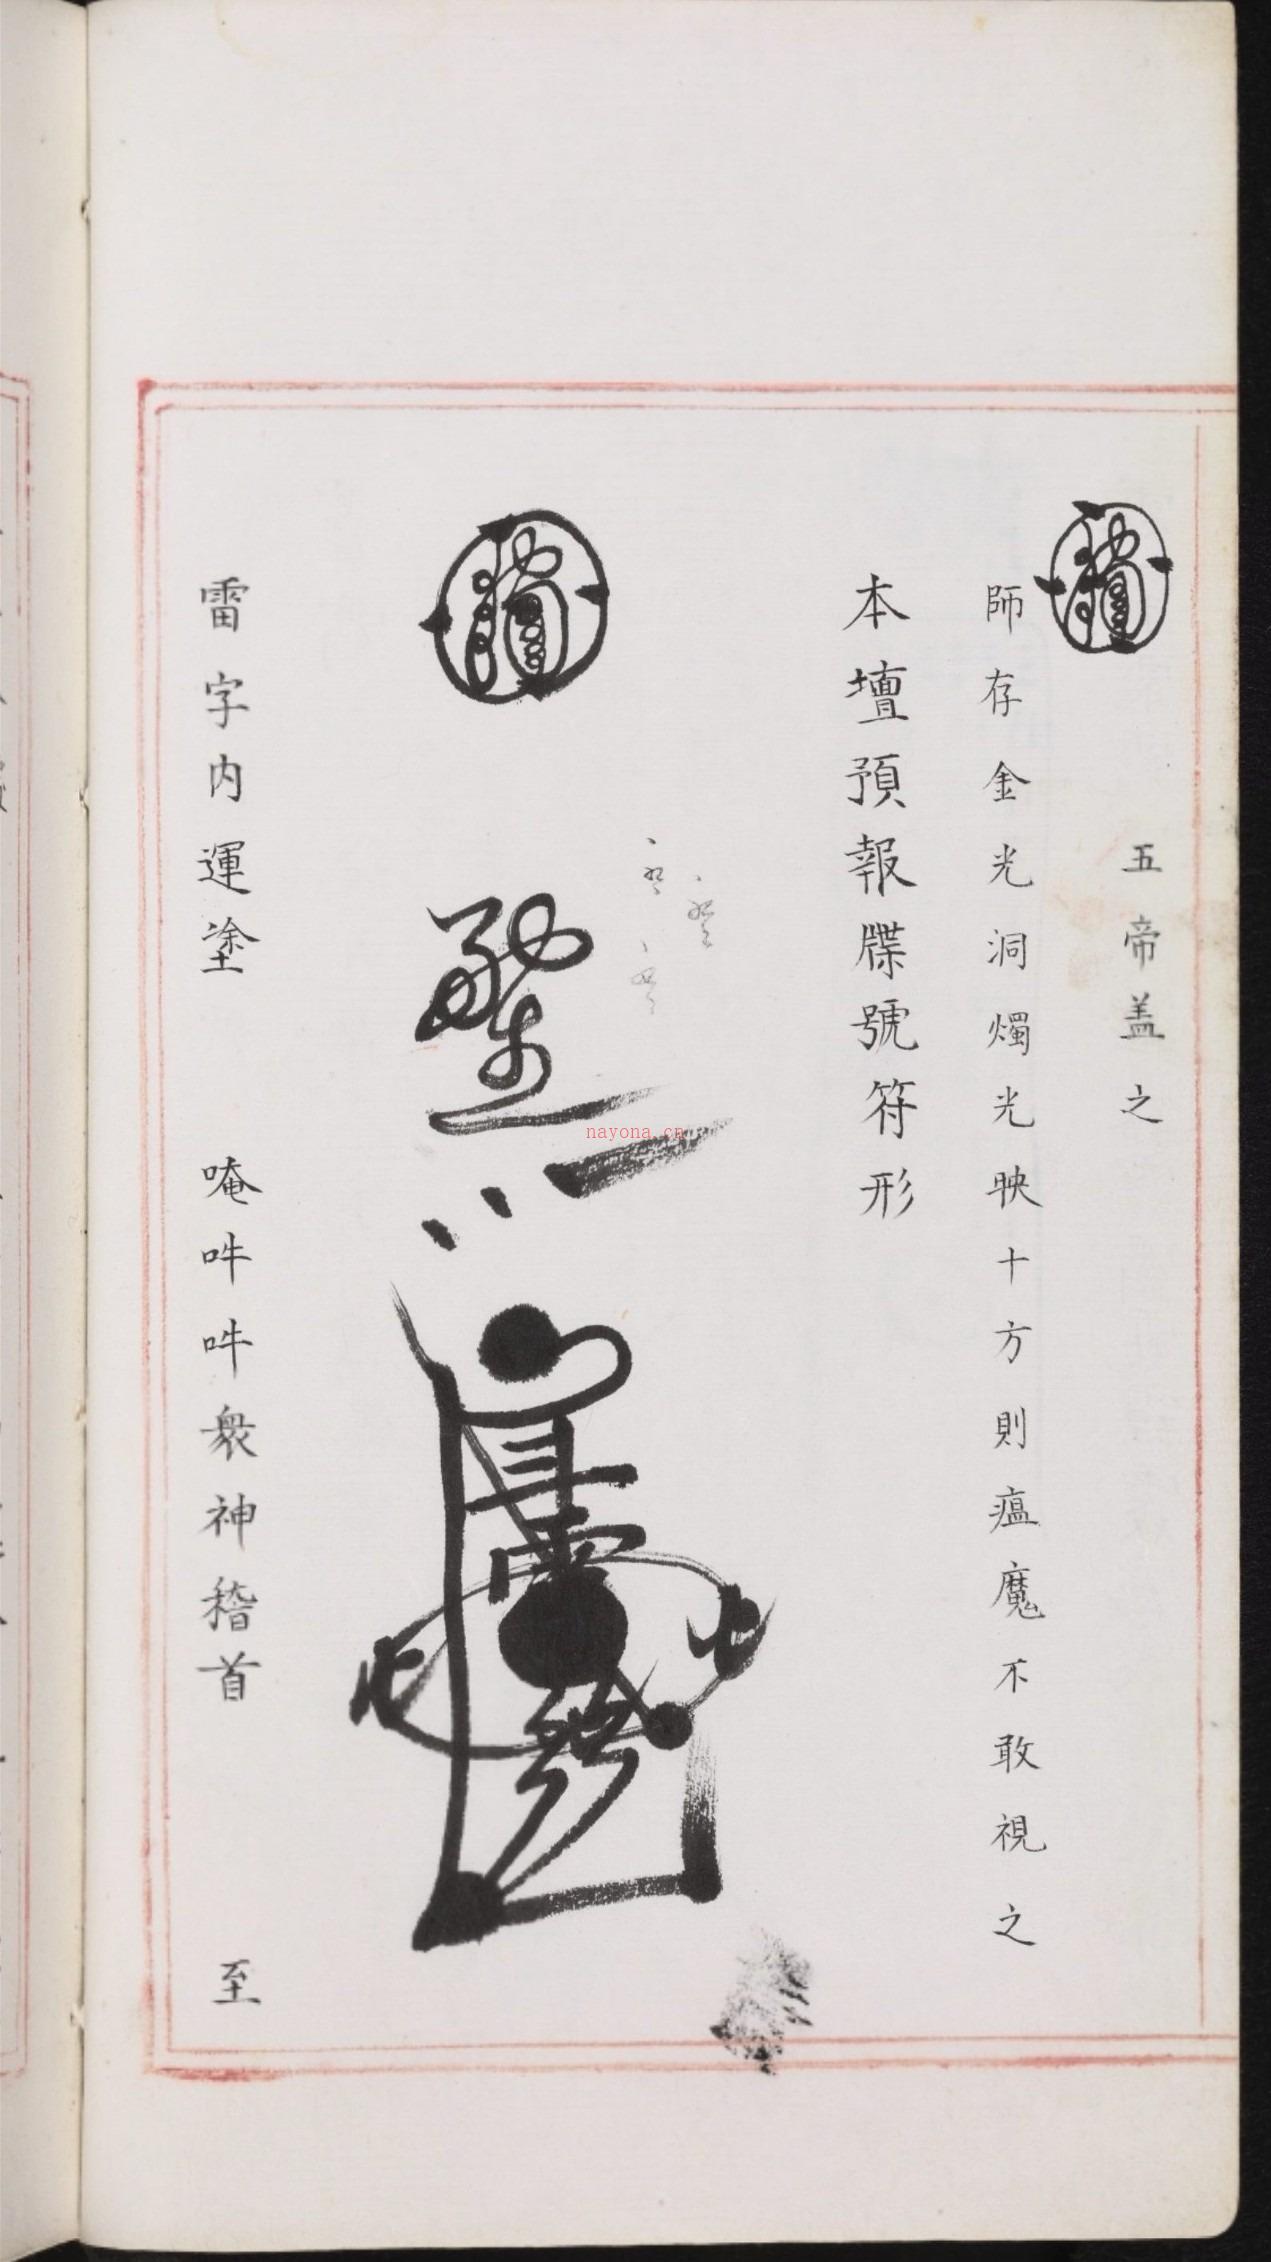 五帝盖之
師存金光洞燭光映十方則瘟魔不敢視之
本壇預報牒號符形
nayona.cn
雷字内運塗 唵吽吽衆神稽首 至